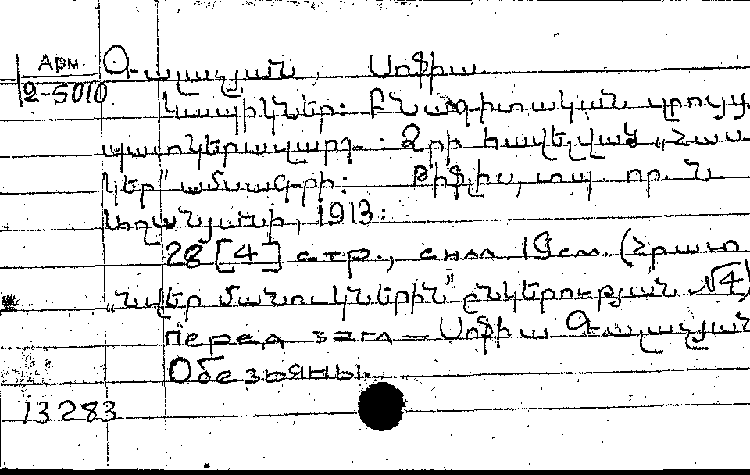 Арм.
2-5010
Գալաչյան, Սոֆիա
Կապիկներ: Բնագիտական զրույց,
պատկերազարդ: Ձրի հավելված „Հաս
կեր” ամսագրի: Թիֆլիս, տպ. օր. Ն.
Աղանյանի, 1913:
28 [4] стр., 19 см. (Հրատ.
„Նվեր մանուկներին” ընկերության №4)
перед загл. — Սոֆիա Գալաչյան
Обезьяны.
13283